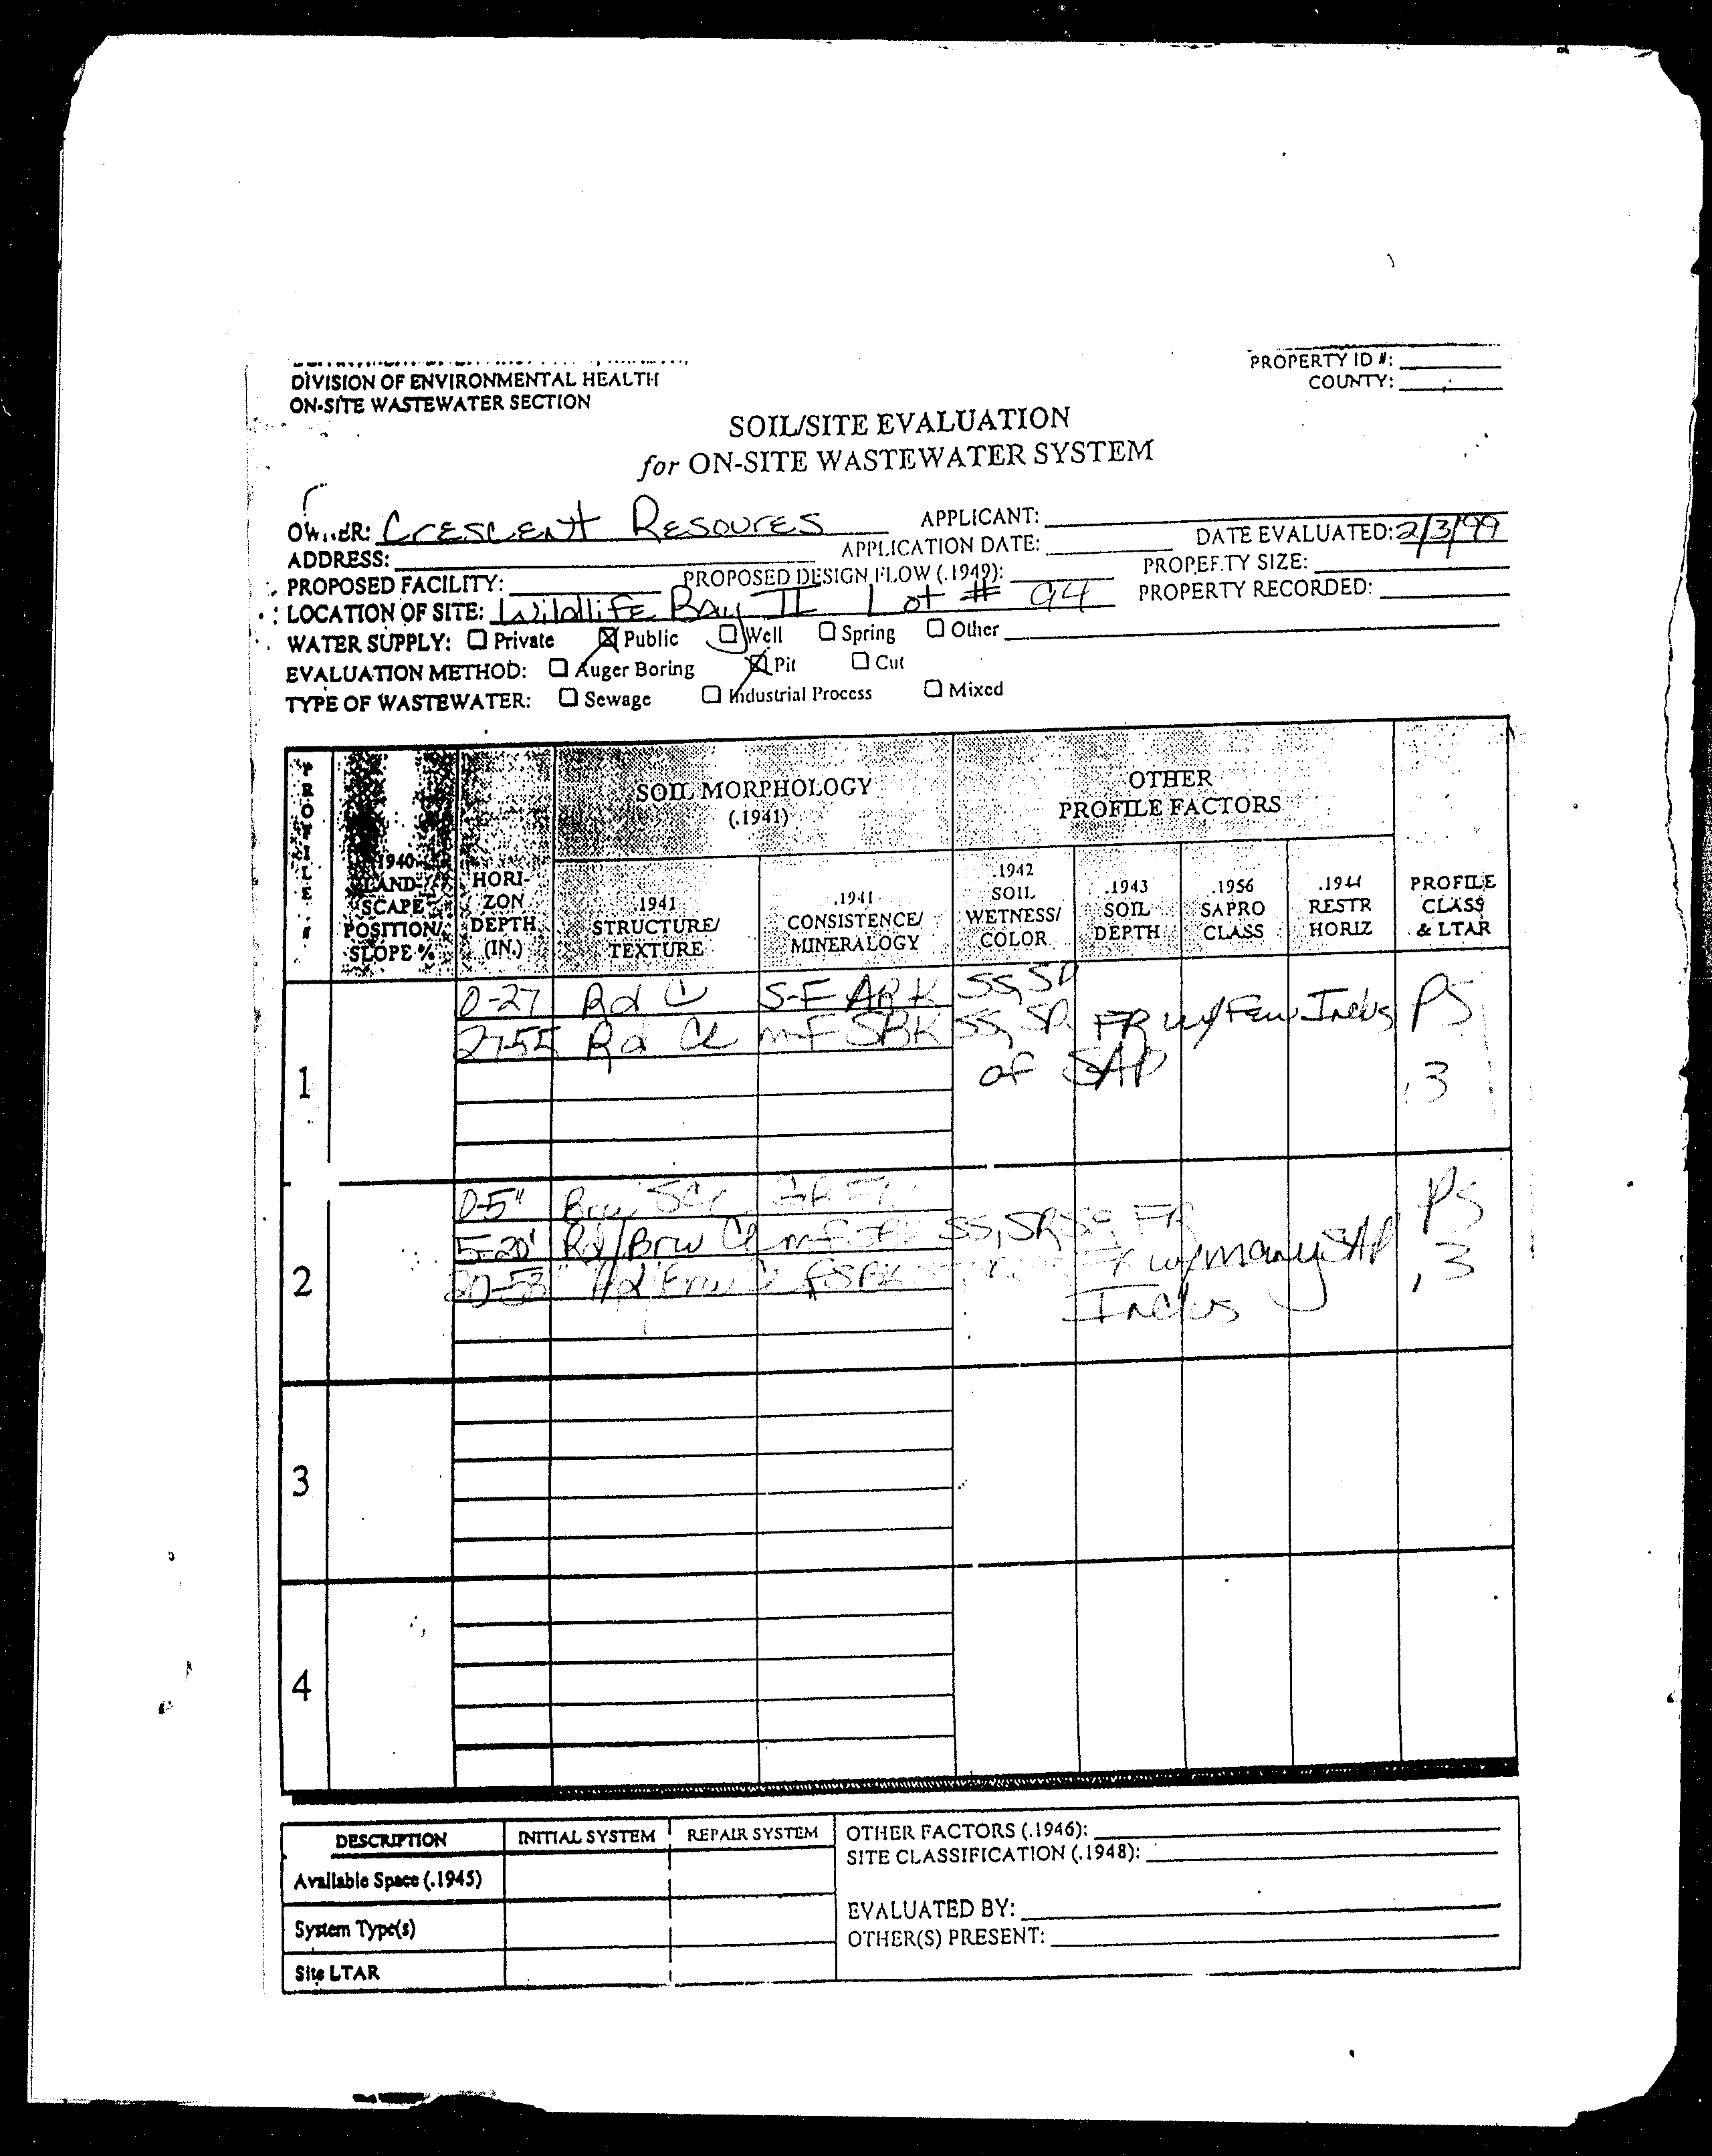 DIVISION OF ENVIRONMENTAL HEALTH
ON-SITE WASTEWATER SECTION
PROPERTY ID #:
COUNTY:
SOIL/SITE EVALUATION
for ON-SITE WASTEWATER SYSTEM
OWNER: Crescent Resoures APPLICANT:
ADDRESS: APPLICATION DATE: DATE EVALUATED: 2/3/99
PROPOSED FACILITY: PROPOSED DESIGN FLOW (.1949): PROPERTY SIZE:
LOCATION OF SITE: Wildlife Bay II Lot # 94 PROPERTY RECORDED:
WATER SUPPLY: ☐ Private ☒ Public ☐ Well ☐ Spring ☐ Other
EVALUATION METHOD: ☐ Auger Boring ☒ Pit ☐ Cut
TYPE OF WASTEWATER: ☐ Sewage ☐ Industrial Process ☐ Mixed
PROFILE #
.1940 LAND-SCAPE POSITION/ SLOPE %
HORI-ZON DEPTH (IN.)
SOIL MORPHOLOGY (.1941)
OTHER PROFILE FACTORS
.1941 STRUCTURE/ TEXTURE
.1941 CONSISTENCE/ MINERALOGY
.1942 SOIL WETNESS/ COLOR
.1943 SOIL DEPTH
.1956 SAPRO CLASS
.1944 RESTR HORIZ
PROFILE CLASS & LTAR
1
0-27 Rd Cl S-F ABK SS, SP PS
27-55 Rd Cl m-F SBK SS, SP FR w/ Few Inclus
of SAP .3
2
0-5" Brw PS
5-20" Rd/Brw Cl SS, FR
20-53" FSBK w/ many SAP .3
Inclus
3
4
DESCRIPTION INITIAL SYSTEM REPAIR SYSTEM
Available Space (.1945)
System Type(s)
Site LTAR
OTHER FACTORS (.1946):
SITE CLASSIFICATION (.1948):
EVALUATED BY:
OTHER(S) PRESENT: